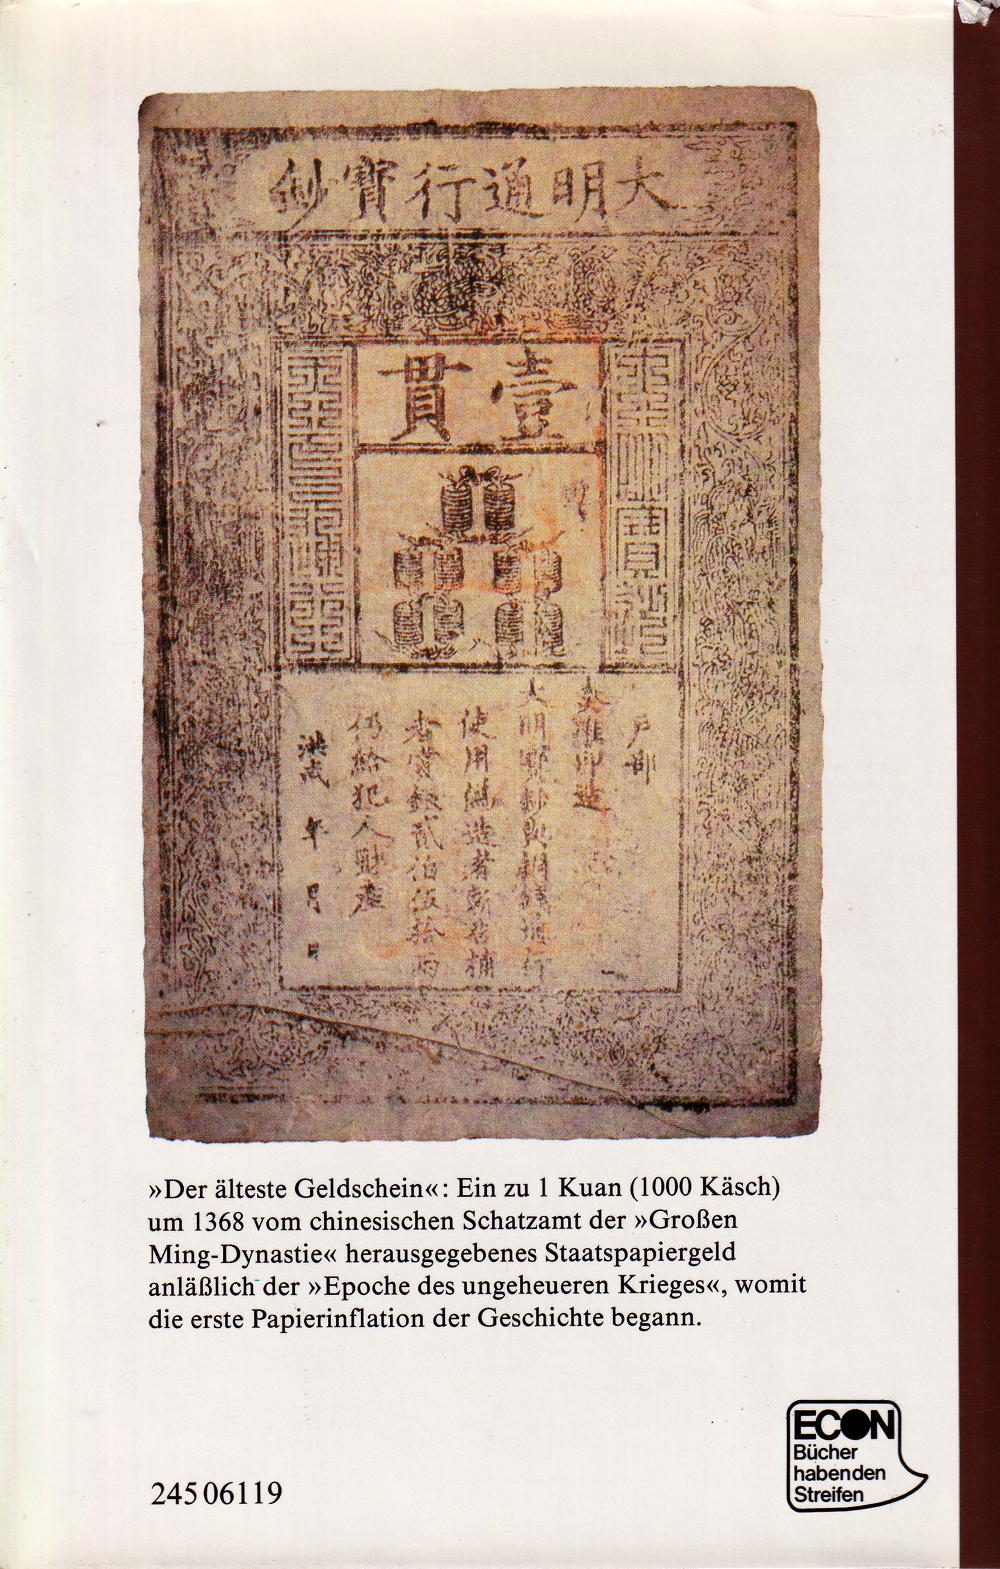 大明通行寶鈔
壹貫
戶部
奏准印造
大明寶鈔與銅錢通行
使用偽造者斬告捕
者賞銀貳伯伍拾兩
仍給犯人財產
洪武 年 月 日
»Der älteste Geldschein«: Ein zu 1 Kuan (1000 Käsch)
um 1368 vom chinesischen Schatzamt der »Großen
Ming-Dynastie« herausgegebenes Staatspapiergeld
anläßlich der »Epoche des ungeheueren Krieges«, womit
die erste Papierinflation der Geschichte begann.
ECON
Bücher
haben den
Streifen
245 06119